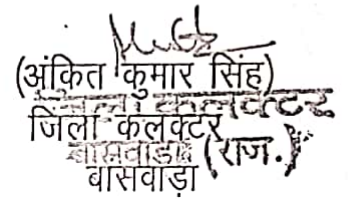 (अंकित कुमार सिंह)
जिला कलक्टर
जिला कलक्टर
बांसवाडा (राज.)
बांसवाड़ा